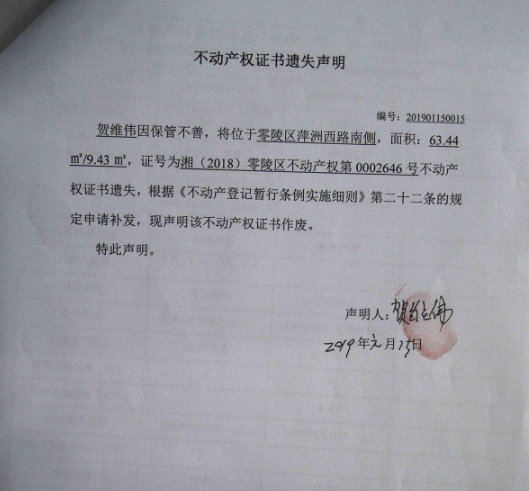 不动产权证书遗失声明
编号：201901150015
贺维伟因保管不善，将位于零陵区萍洲西路南侧，面积：63.44
㎡/9.43 ㎡，证号为湘（2018）零陵区不动产权第 0002646 号不动产
权证书遗失，根据《不动产登记暂行条例实施细则》第二十二条的规
定申请补发，现声明该不动产权证书作废。
特此声明。
声明人：贺维伟
2019 年元月15日